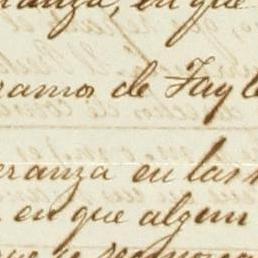 ranza, en que
ramos de Tayl
eranza en las
en que algun